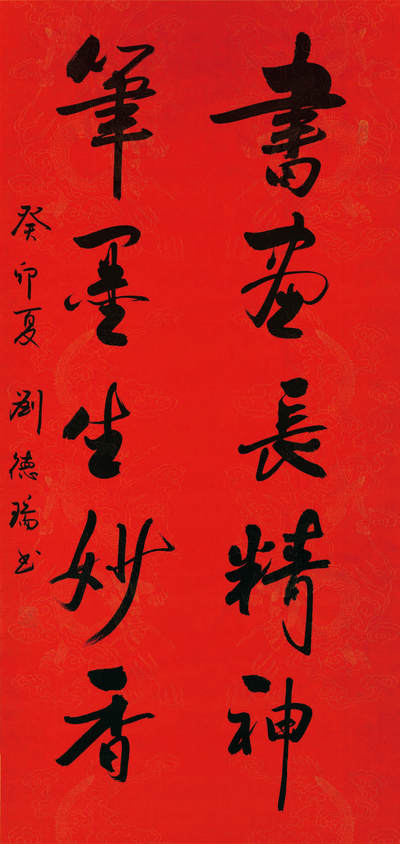 書畫長精神
筆墨生妙香
癸卯夏 劉德瑞书